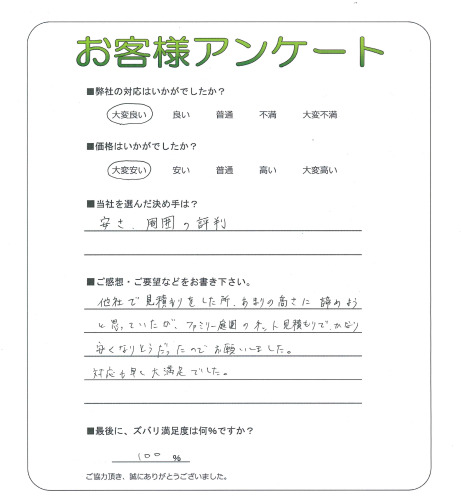 お客様アンケート
■弊社の対応はいかがでしたか？
大変良い 良い 普通 不満 大変不満
■価格はいかがでしたか？
大変安い 安い 普通 高い 大変高い
■当社を選んだ決め手は？
安さ、周囲の評判
■ご感想・ご要望などをお書き下さい。
他社で見積もりをした所、あまりの高さに諦めよう
と思っていたが、ファミリー庭園のネット見積もりで、かなり
安くなりそうだったのでお願いしました。
対応も早く大満足でした。
■最後に、ズバリ満足度は何%ですか？
100 %
ご協力頂き、誠にありがとうございました。